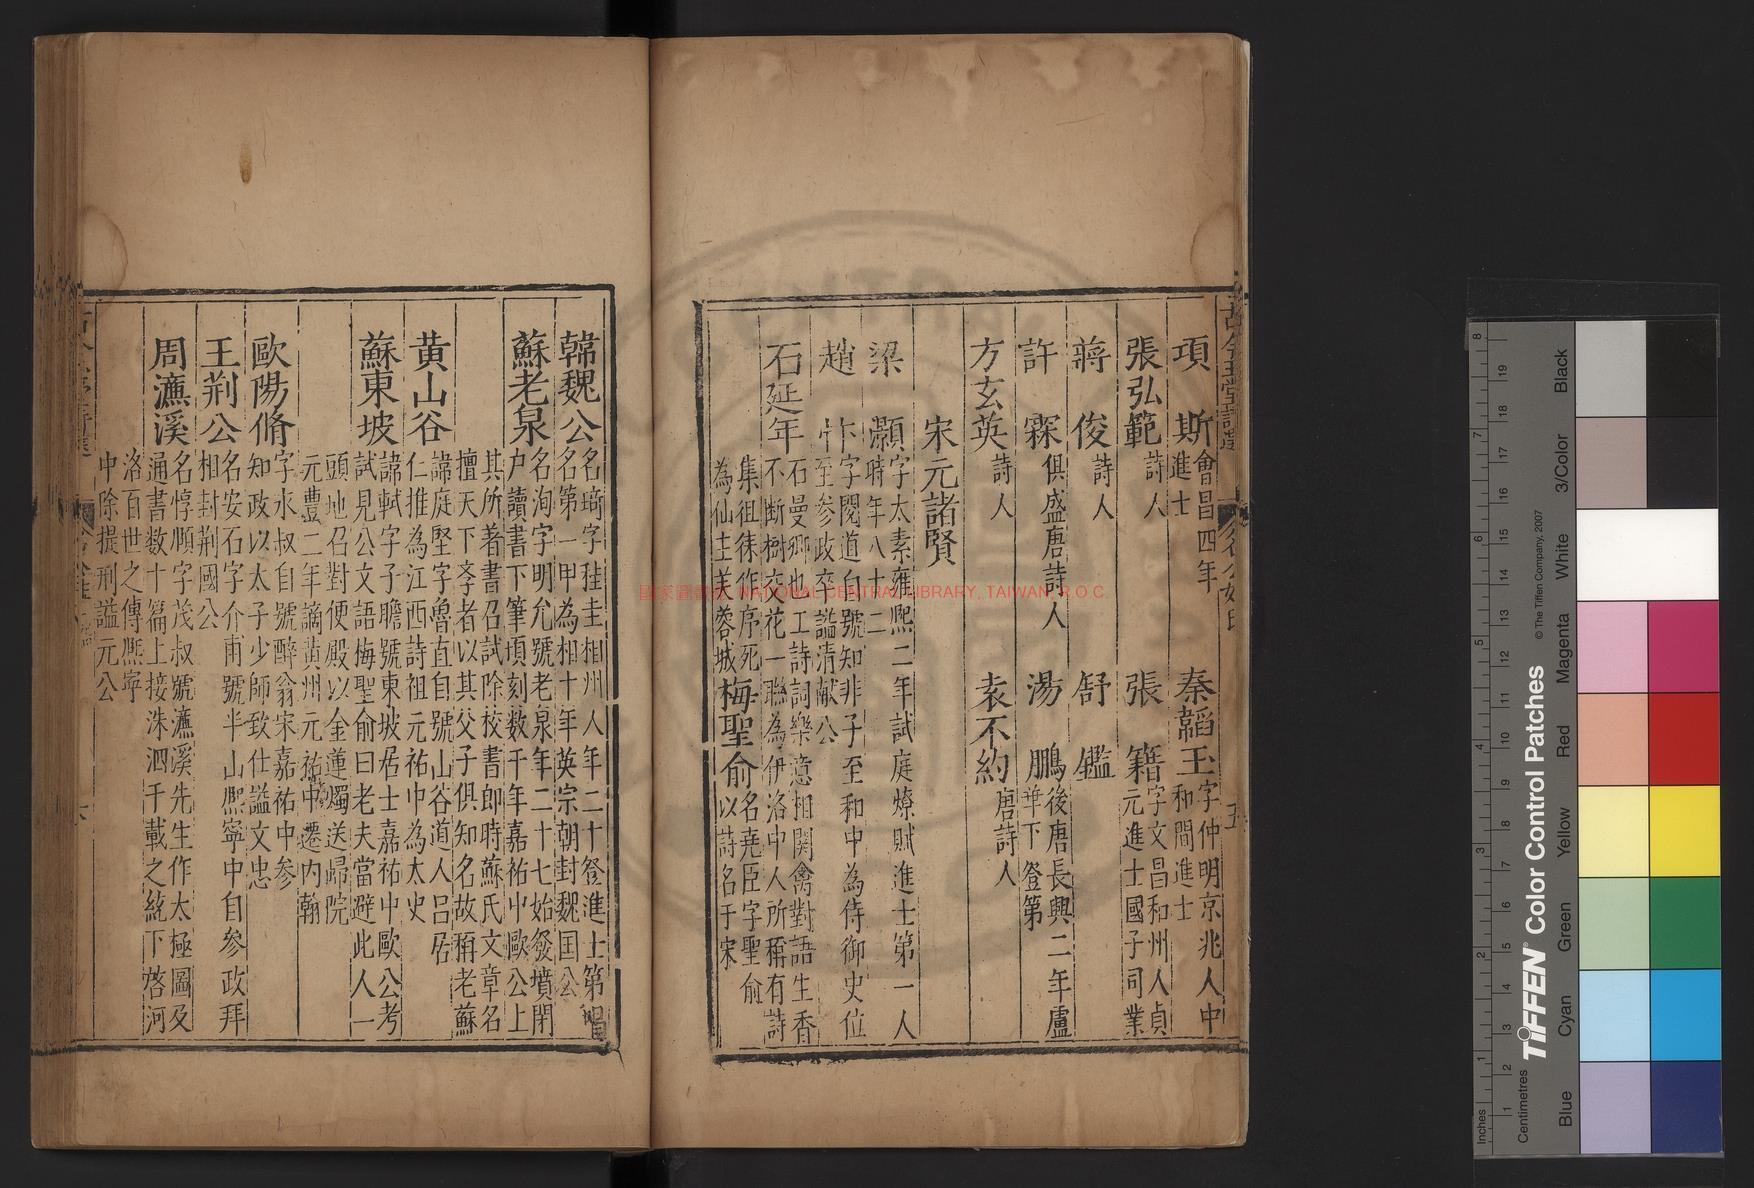 項斯會昌四年進士 秦韜玉字仲明京兆人中和間進士
張弘範詩人 張籍字文昌和州人貞元進士國子司業
蔣俊詩人 舒鑑
許霖俱盛唐詩人 湯鵬後唐長興二年盧華下登第
方玄英詩人 袁不約唐詩人
宋元諸賢
梁灝字太素雍熙二年試庭燎賦進士第一人時年八十二
趙抃字閱道自號知非子至和中為侍御史位至參政卒謚清獻公
石延年石曼卿也工詩詞樂意相関禽對語生香不斷樹交花一聯為伊洛中人所稱有詩集徂徠作序死為仙主芙蓉城 梅聖俞名堯臣字聖俞以詩名于宋
韓魏公名琦字稚圭相州人年二十登進士第唱名第一甲為相十年英宗朝封魏国公
蘇老泉名洵字明允號老泉年二十七始發憤閉户讀書下筆頃刻数千年嘉祐中歐公上其所著書召試除校書即時蘇氏文章名擅天下李者以其父子俱知名故稱老蘇
黄山谷諱庭堅字魯直自號山谷道人吕居仁推為江西詩祖元祐中為太史
蘇東坡諱軾字子瞻號東坡居士嘉祐中歐公考試見公文語梅聖俞曰老夫當避此人一頭地召對便殿以金蓮燭送歸院元豊二年謫黄州元祐中遷内翰
歐陽脩字永叔自號醉翁宋嘉祐中參知政以太子少師致仕謚文忠
王荆公名安石字介甫號半山熈寧中自參政拜相封荆國公
周濂溪名惇順字茂叔號濂溪先生作太極圖及通書数十篇上接洙泗千載之統下啓河洛百世之傳熈寧中除提刑謚元公
國家圖書館, NATIONAL CENTRAL LIBRARY, TAIWAN, R.O.C.
Inches
Centimetres
TIFFEN® Color Control Patches
© The Tiffen Company, 2007
Blue
Cyan
Green
Yellow
Red
Magenta
White
3/Color
Black